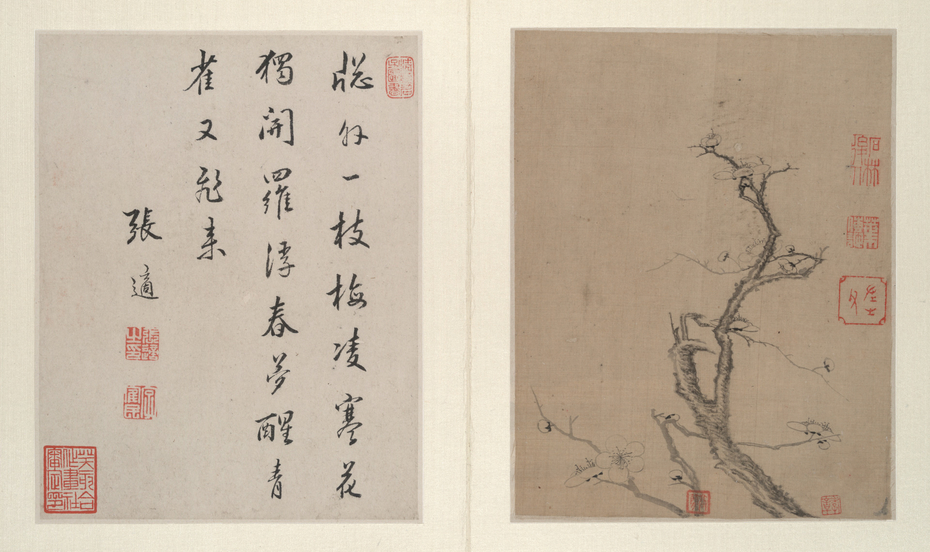 牕外一枝梅凌寒花
獨開羅浮春夢醒青
雀又飛來
張適